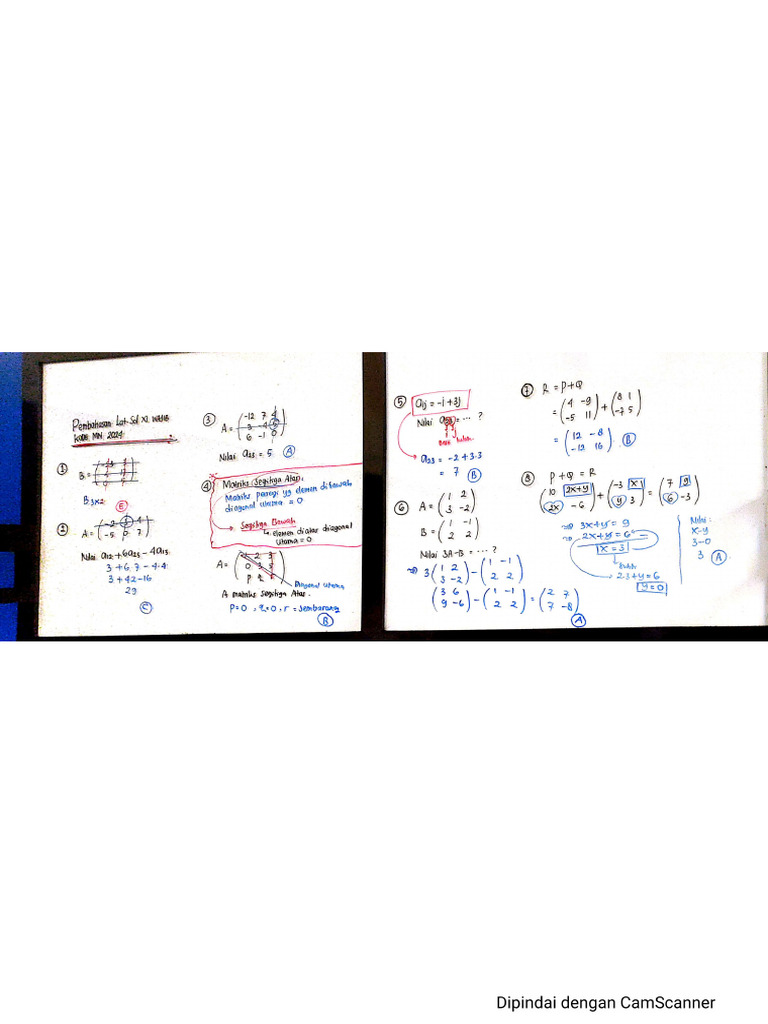 Pembahasan Lat. Sol XI. WAJIB
KODE MN. 2024
①
B =
B 3x2
E
② A = ( -2 3 4
-5 0 7 )
Nilai a12 + 6a23 - 4a13
3 + 6.7 - 4.4
3 + 42 - 16
29
C
③
A = ( -12 7 4
3 -4 5
6 -1 0 )
Nilai a23 = 5 A
④ Matriks Segitiga Atas.
Matriks persegi yg elemen dibawah
diagonal utama = 0
Segitiga Bawah
↳ elemen diatas diagonal
utama = 0
A = ( 1 2 3
0 3 5
p q r )
Diagonal utama
A matriks Segitiga Atas.
P=0, q=0, r = sembarang
B
⑤ aij = -i + 3j
Nilai a23 = .... ?
Baris kolom
a23 = -2 + 3.3
= 7 B
⑥ A = ( 1 2
3 -2 )
B = ( 1 -1
2 2 )
Nilai 3A-B = .... ?
⇒ 3 ( 1 2
3 -2 ) - ( 1 -1
2 2 )
( 3 6
9 -6 ) - ( 1 -1
2 2 ) = ( 2 7
7 -8 )
A
⑦ R = P + Q
= ( 4 -9
-5 11 ) + ( 8 1
-7 5 )
= ( 12 -8
-12 16 ) B
⑧ P + Q = R
( 10 2x+y
2x -6 ) + ( -3 x
y 3 ) = ( 7 9
6 -3 )
⇒ 3x + y = 9
⇒ 2x + y = 6 -
x = 3
2.3 + y = 6
y = 0
Nilai :
x-y
3-0
3 A
Dipindai dengan CamScanner